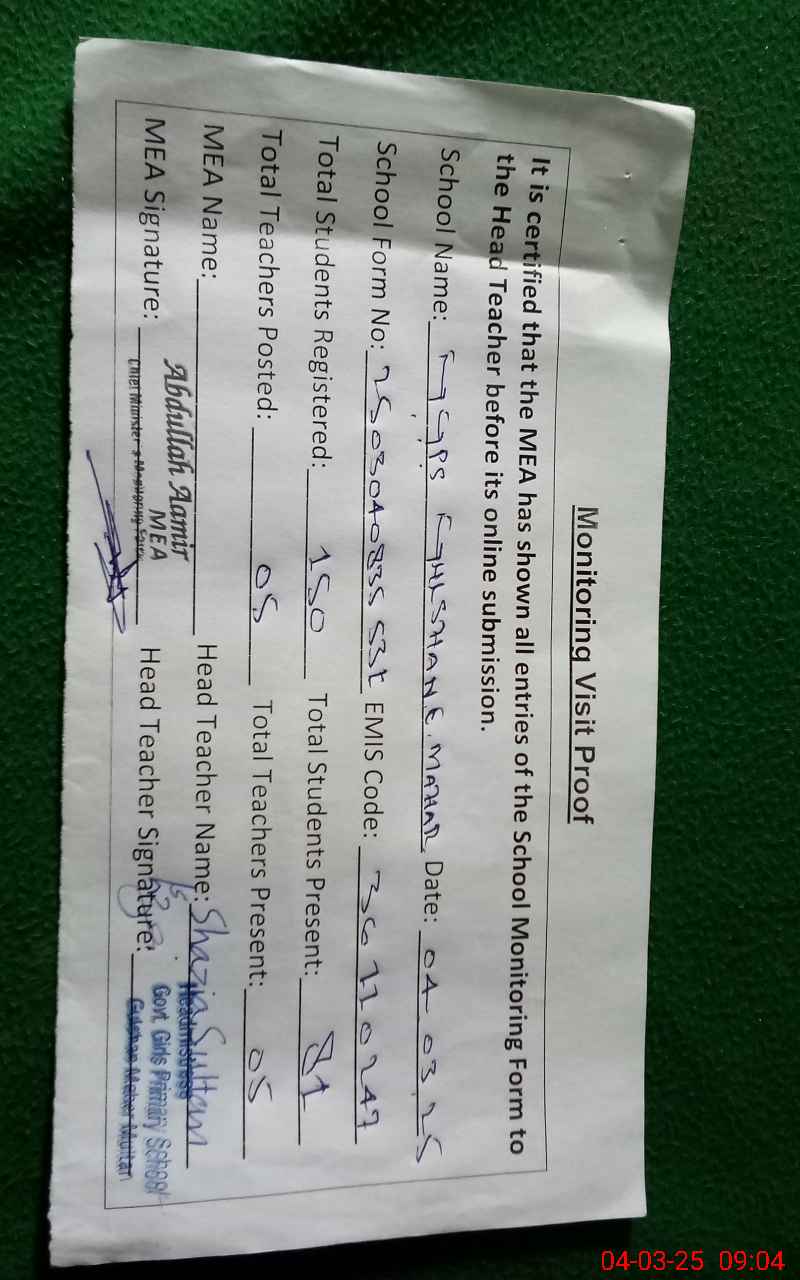 Monitoring Visit Proof
It is certified that the MEA has shown all entries of the School Monitoring Form to
the Head Teacher before its online submission.
School Name: GGPS GULSHANE MAHAR Date: 04-03-25
School Form No: 2503040835 531 EMIS Code: 36110247
Total Students Registered: 150 Total Students Present: 81
Total Teachers Posted: 05 Total Teachers Present: 05
MEA Name: Abdullah Aamir Head Teacher Name: Shazia Sultan
MEA
Headmistress
MEA Signature: Chief Minister's Monitoring Force Head Teacher Signature:
Govt. Girls Primary School
Gulshan Maher Multan
04-03-25 09:04